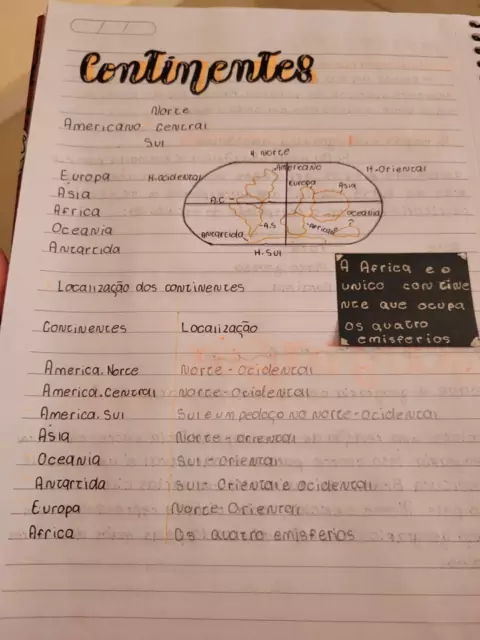 Continentes
Norte
Americano Central
Sul
H. Norte
H. Ocidental
Americano
Europa
Asia
H. Oriental
A.C
A.S
Africa
Oceania
2
Antartida
H. Sul
Europa
Ásia
Africa
Oceania
Antartida
A Africa e o
unico contine
nte que ocupa
os quatro
emisferios
Localização dos continentes
Continentes Localização
America. Norte Norte - Ocidental
America. Central Norte - Ocidental
America. Sul Sul e um pedaço no Norte - Ocidental
Ásia Norte - Oriental
Oceania Sul - Oriental
Antartida Sul - Oriental e Ocidental
Europa Norte - Oriental
Africa Os quatro emisferios